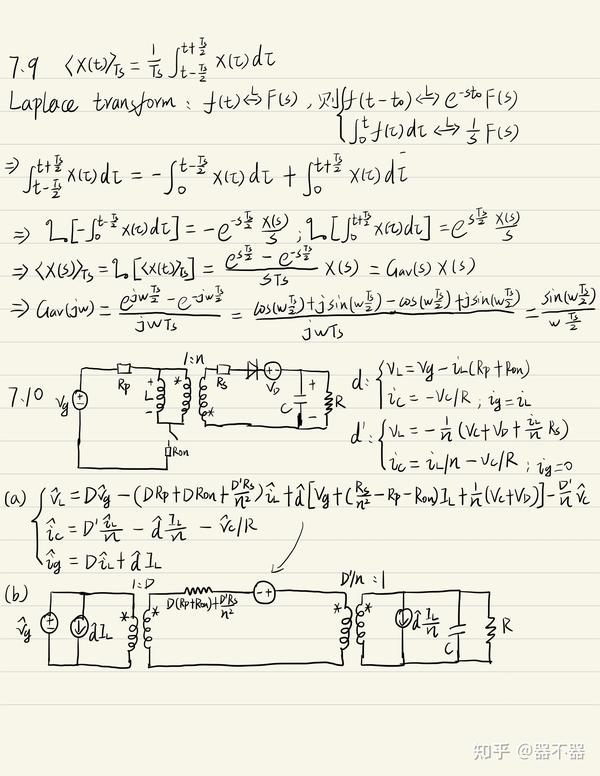 7.9 ⟨x(t)⟩_Ts = 1/Ts ∫_{t-Ts/2}^{t+Ts/2} x(τ)dτ
Laplace transform: f(t) ⇔^L F(s), 则{f(t-t₀) ⇔^L e^{-st₀}F(s)
∫_0^t f(τ)dτ ⇔^L 1/s F(s)
⇒ ∫_{t-Ts/2}^{t+Ts/2} x(τ)dτ = -∫_0^{t-Ts/2} x(τ)dτ + ∫_0^{t+Ts/2} x(τ)dτ
⇒ L[-∫_0^{t-Ts/2} x(τ)dτ] = -e^{-sTs/2} X(s)/s ; L[∫_0^{t+Ts/2} x(τ)dτ] = e^{sTs/2} X(s)/s
⇒ ⟨x(s)⟩_Ts = L[⟨x(t)⟩_Ts] = (e^{sTs/2} - e^{-sTs/2})/(sTs) X(s) = Gav(s) X(s)
⇒ Gav(jw) = (e^{jwTs/2} - e^{-jwTs/2})/(jwTs) = (cos(wTs/2) + jsin(wTs/2) - cos(wTs/2) + jsin(wTs/2))/(jwTs) = sin(wTs/2)/(w Ts/2)
7.10
Vg
Rp
L
+
-
1:n
*
*
Ron
Rs
VD
C
+
-
R
d: {VL = Vg - iL(Rp+Ron)
ic = -Vc/R ; ig = iL
d': {VL = -1/n (Vc+VD+ iL/n Rs)
ic = iL/n - Vc/R ; ig=0
(a) {v̂L = Dv̂g - (DRp+DRon+ D'Rs/n²)îL + d̂[Vg+(Rs/n² - Rp - Ron)IL + 1/n(Vc+VD)] - D'/n v̂c
îc = D' îL/n - d̂ IL/n - v̂c/R
îg = DîL + d̂IL
(b)
v̂g
d̂IL
1:D
*
*
D(Rp+Ron)+ D'Rs/n²
- +
D'/n : 1
*
*
d̂ IL/n
C
R
知乎 @器不器